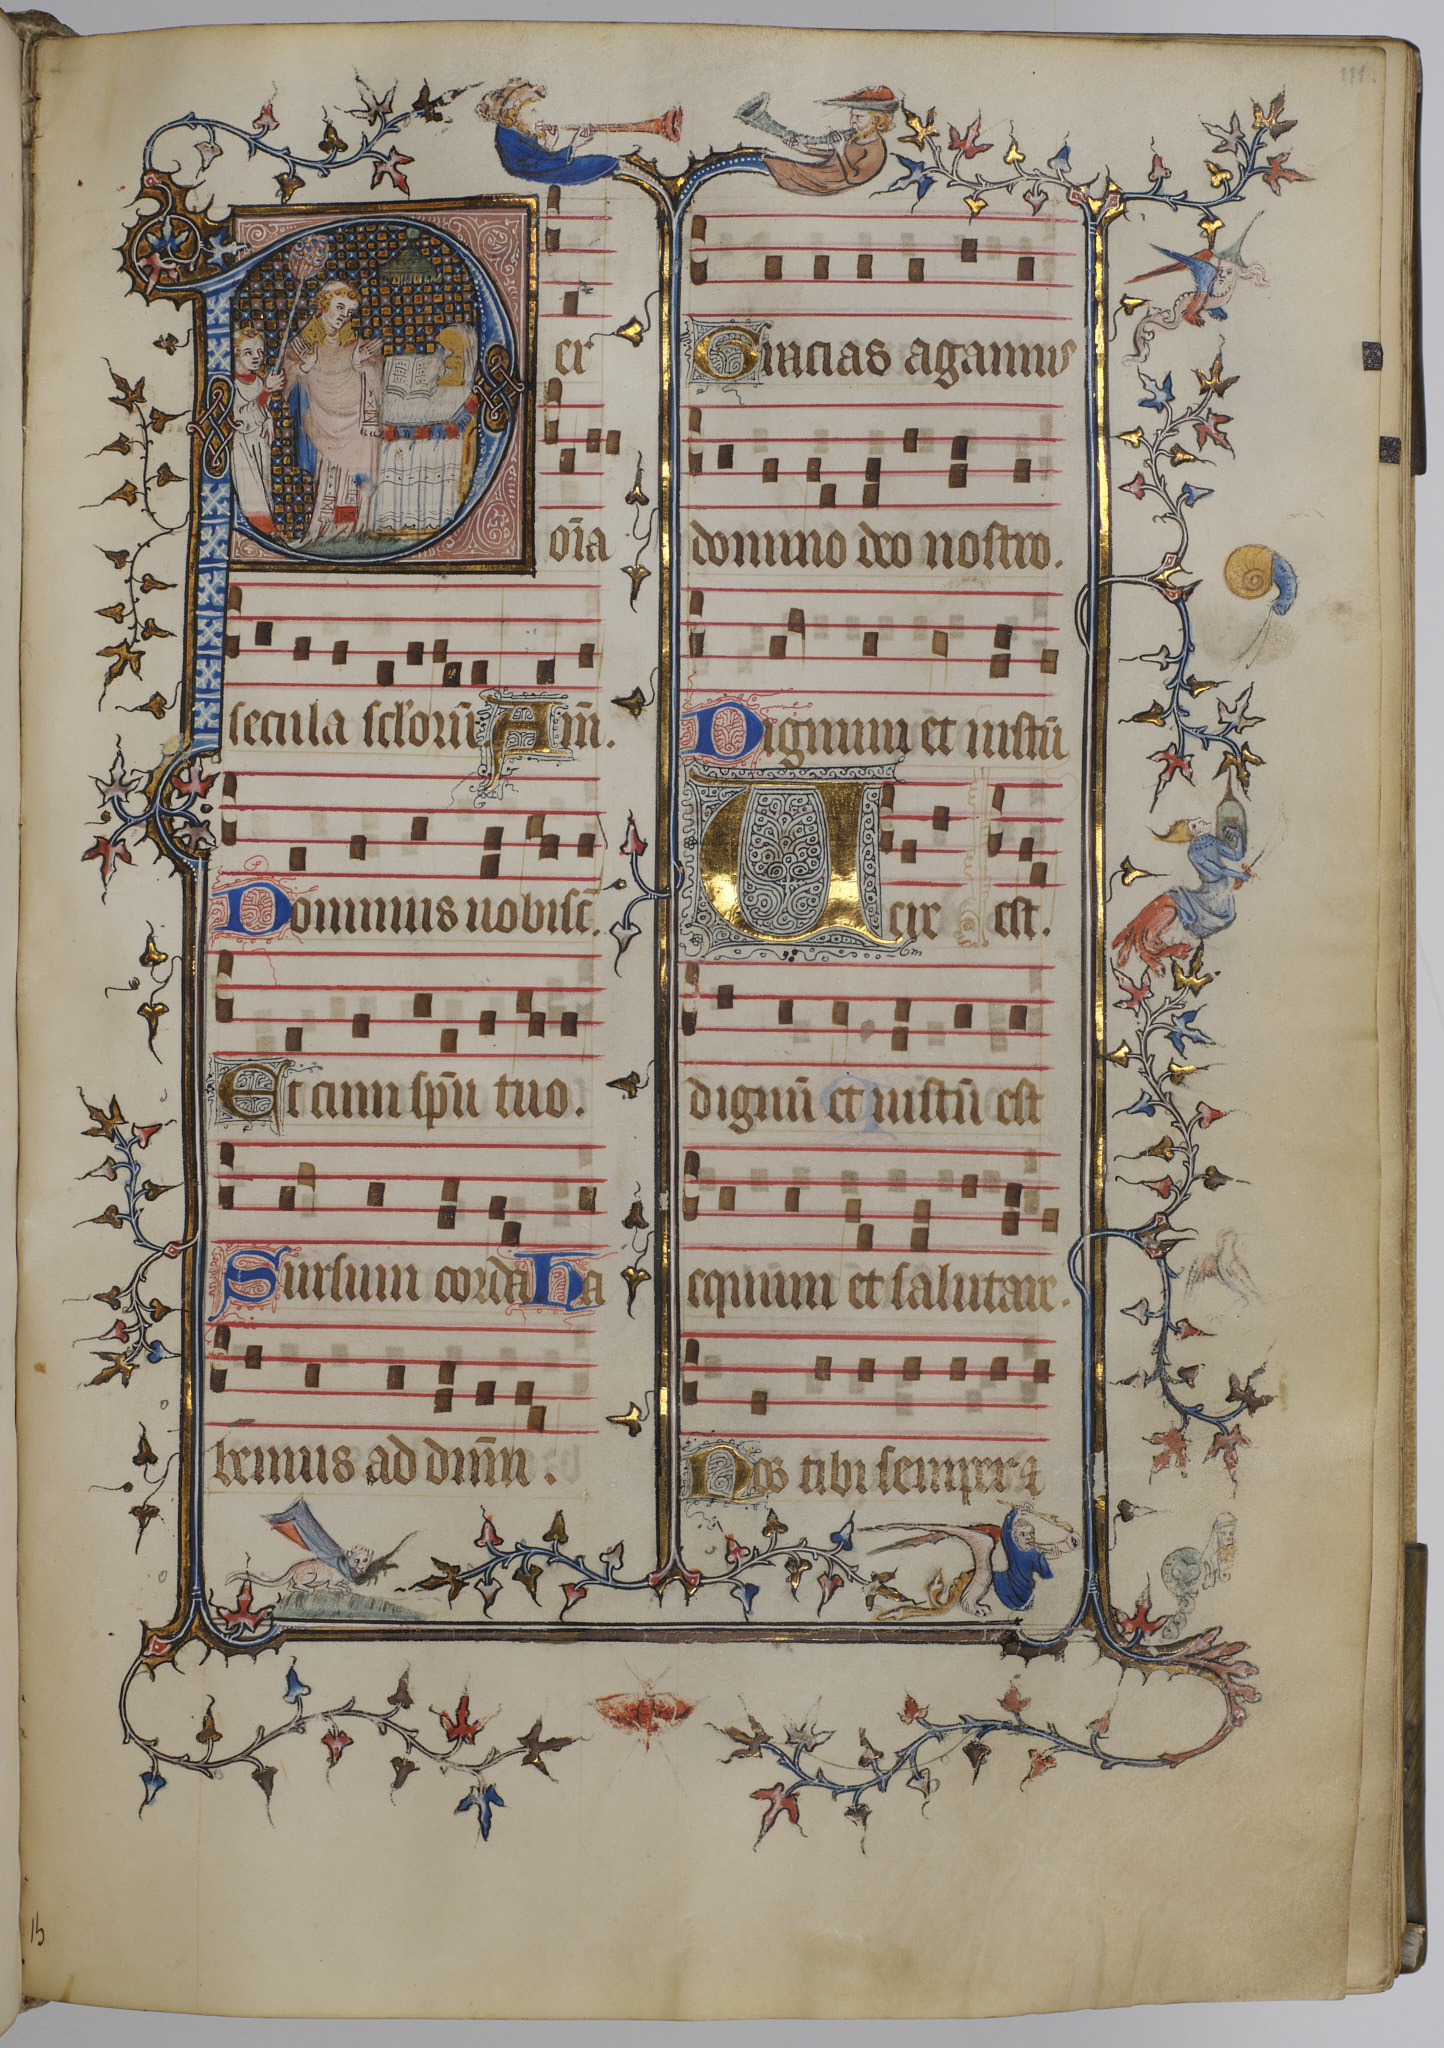 111.
Per
oīa
secula sc̄lorū Am̄.
Dominus uobisc̄.
Et cum sp̄u tuo.
Sursum corda Ha
bemus ad dn̄m.
Gracias agamus
domino deo nostro.
Dignum et iustū
Uere est.
dignū et iustū est
equum et salutare.
Nos tibi semper 
15